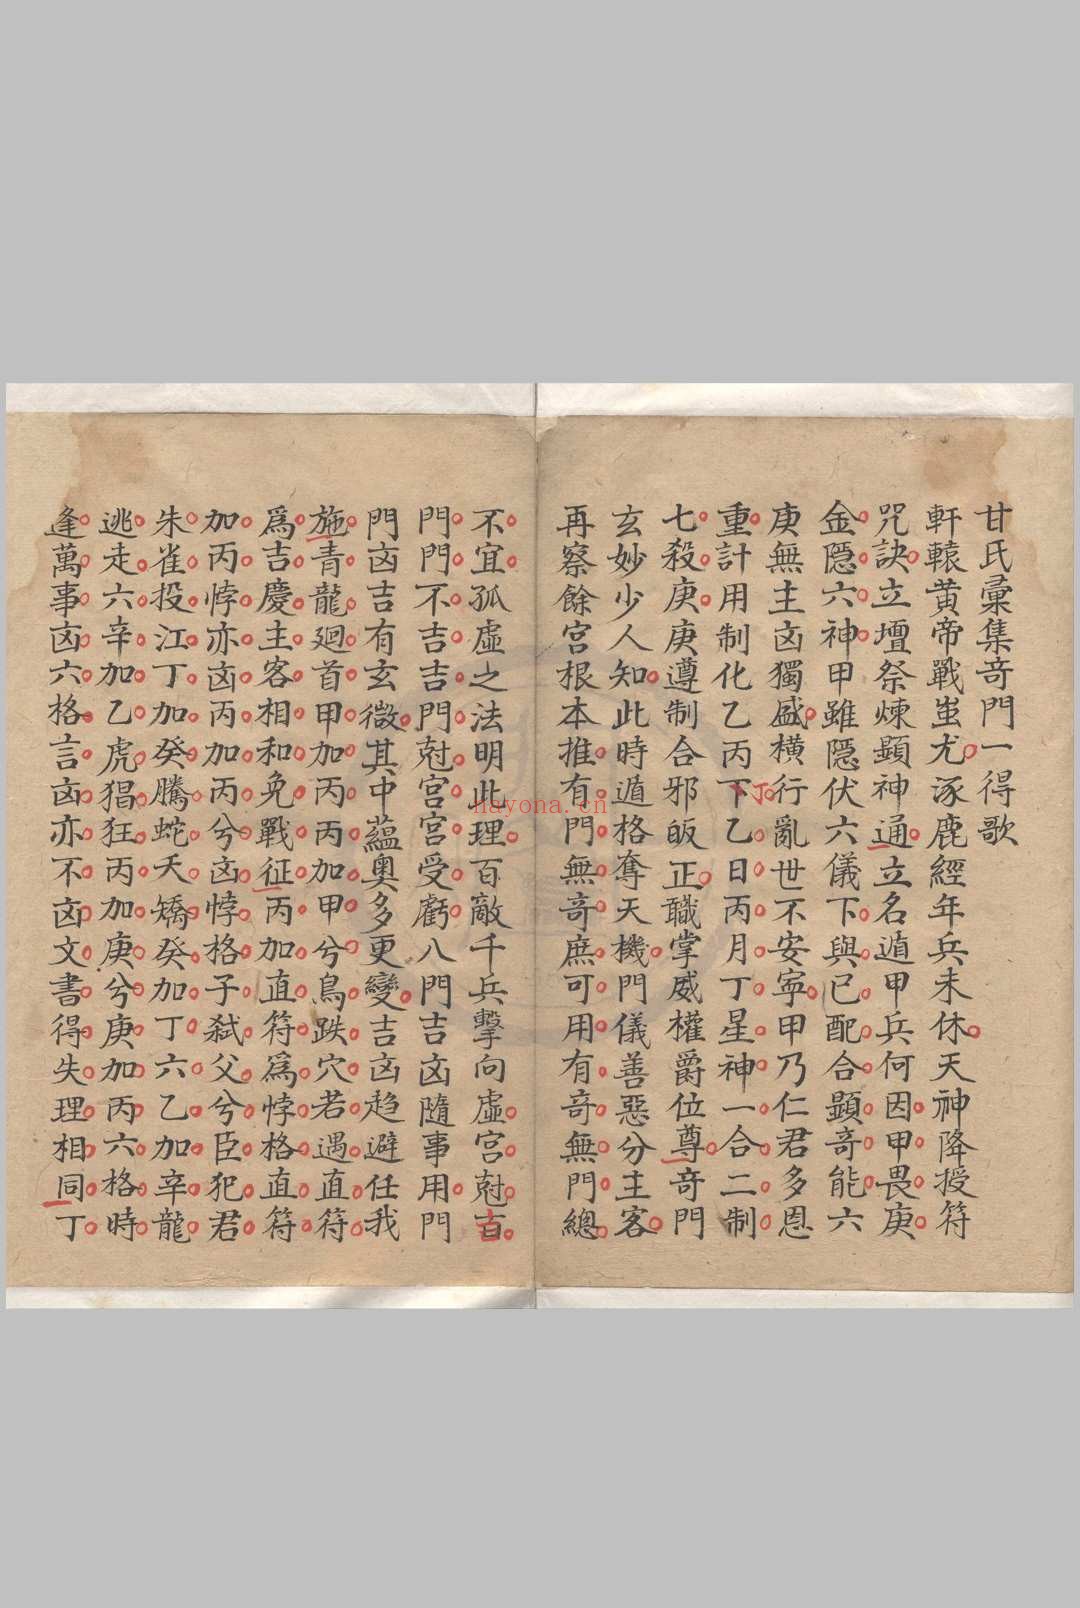 甘氏彙集竒門一得歌
軒轅黄帝戰蚩尤涿鹿經年兵未休天神降授符
咒訣立壇祭煉顕神通立名遁甲兵何因甲畏庚
金隱六神甲雖隱伏六儀下與已配合顕竒能六
庚無主凶獨盛橫行亂世不安寧甲乃仁君多恩
重計用制化乙丙下丁乙日丙月丁星神一合二制
七殺庚庚遵制合邪皈正職掌威權爵位尊竒門
玄妙少人知此時遁格奪天機門儀善惡分主客
再察餘宮根本推有門無竒庶可用有竒無門總
不宜孤虛之法明此理百敵千兵擊向虛宮尅吉
門門不吉吉門尅宮宮受虧八門吉凶隨事用門
門凶吉有玄微其中蘊奧多更變吉凶趋避任我
施青龍廻首甲加丙丙加甲兮鳥跌穴若遇直符
爲吉慶主客相和免戰征丙加直符爲悖格直符
加丙悖亦凶丙加丙兮凶悖格子弒父兮臣犯君
朱雀投江丁加癸騰蛇夭矯癸加丁六乙加辛龍
逃走六辛加乙虎猖狂丙加庚兮庚加丙六格時
逢萬事凶六格言凶亦不凶文書得失理相同丁
nayona.cn